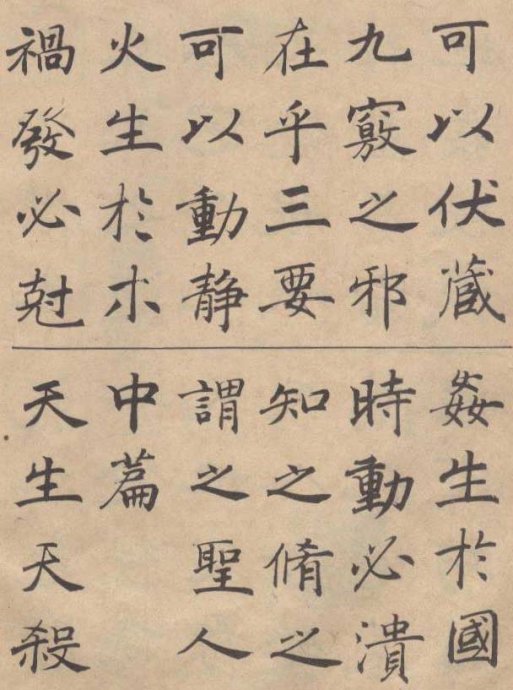 可以伏藏
九竅之邪
在乎三要
可以動静
火生於木
禍發必尅
姦生於國
時動必潰
知之脩之
謂之聖人
中篇
天生天殺